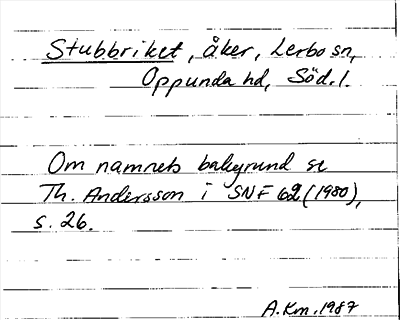 Stubbriket, åker, Lerbo sn,
Oppunda hd, Söd.l.
Om namnets bakgrund se
Th. Andersson i SNF 62 (1980),
s. 26.
A.Km. 1987